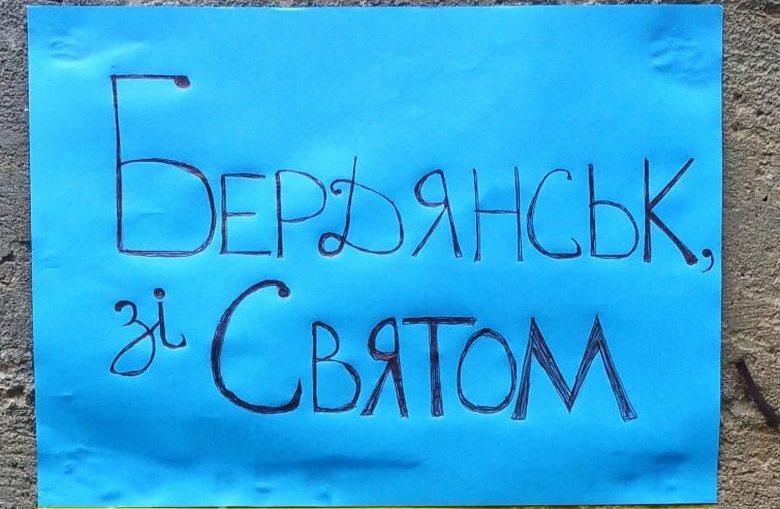 Бердянськ,
зі Святом